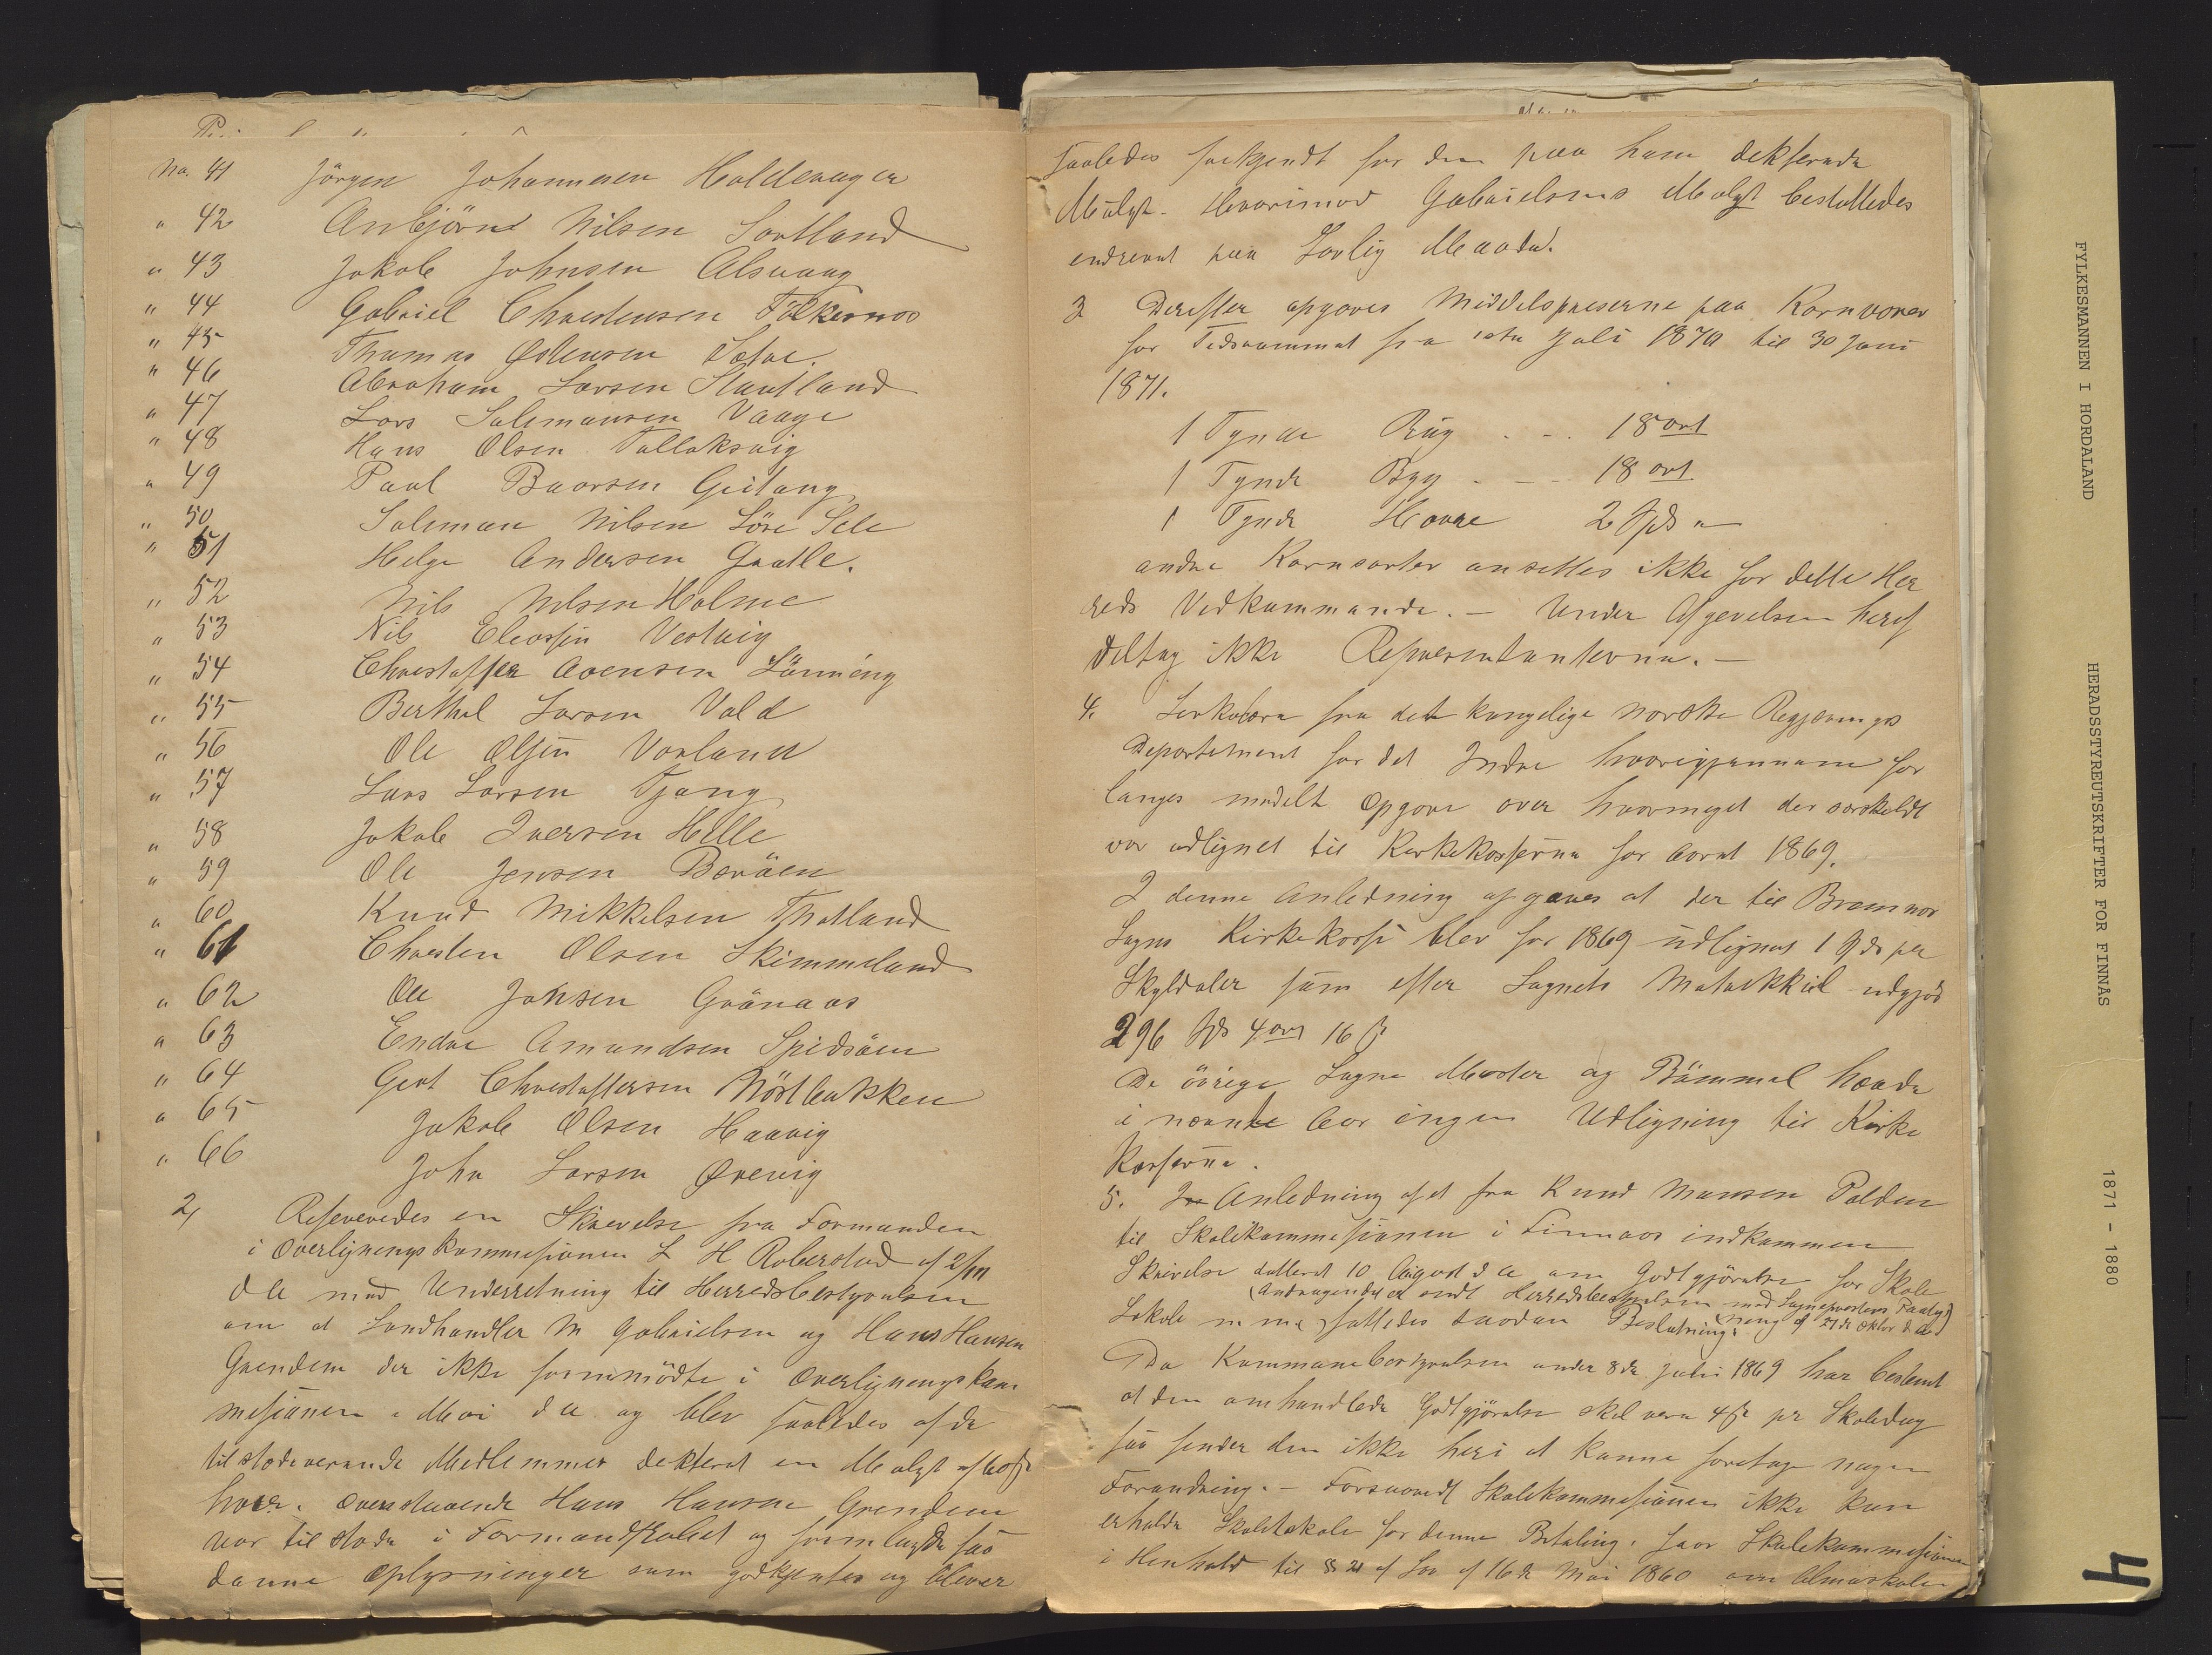 No. 41 Jörgen Johannesen Haldevagen
" 42 Anbjörn Nilsen Sortland
" 43 Jakob Johnsen Alsvaag
" 44 Gabriel Christensen Folkernos
" 45 Thomas Østensen Sætre.
" 46 Abraham Larsen Stautland
" 47 Lars Salemonsen Vaage
" 48 Hans Olsen Tollaksvig
" 49 Paul Baarsen Geitang
" 50 Salemon Nilsen Söre Sele
" 51 Helge Andersen Gaatle.
" 52 Nils Nilsen Holme
" 53 Nils Vestvig
" 54 Christoffer Arensen Lönning
" 55 Berthel Larsen Vold
" 56 Ole Olsen Vorland
" 57 Lars Larsen Tjong
" 58 Jakob Iversen Hille
" 59 Ole Jensen Beröen
" 60 Knud Mikkelsen Thotland
" 61 Christen Olsen Skimmeland
" 62 Ole Johsen Grönaas
" 63 Endre Amundsen Spidsöen
" 64 Gert Christoffersen Nöstbakken
" 65 Jakob Olsen Haavig
" 66 John Larsen Ørevig
2, Refereredes en Skrivelse fra Formanden
i Overligningskommisionen L H Robberstad af
d A med Underretning til Herredsbestyrelsen
om at Landhandler M Gabrielsen og Hans Hansen
Grendem der ikke fremmödte i Overligningskom
misionen i Mai d A og blev saaledes af de
tilstedeverende Medlemmer dekteret en Mulgt af 60 ß
hver. Ovenstaaende Hans Hansen Grendem
var til stede i Formandskabet og fremlagde saa
danne Oplysninger som godkjentes og blever
saaledes frikjendt for den paa ham dekterede
Mulgt. Hvorimod Gabrielsens Mulgt besluttedes
inddrevet paa Lovlig Maade.
3 Derefter opgaves Middelspriserne paa Kornvarer
for Tidsrummet fra 1ste Juli 1870 til 30 Juni
1871.
1 Tynde Rug . - . 18 ort
1 Tynde Byg . - - 18 ort
1 Tynde Havre 2 Spd "
andre Kornsorter ansettes ikke for dette Her
reds Vedkommende. - Under Afgivelsen heraf
deltog ikke Representanterne. -
4. Serkulære fra det kongelige norske Regjerings
Departement for det Indre hvorigjennem for
langes meddelt Opgave over hvormeget der særskildt
var udlignet til Kirkekasserne for Aaret 1869.
I denne Anledning opgaves at der til Bremnes
Sogns Kirkekasse blev for 1869 udlignet 1 Spd pr
Skylddaler som efter Sognets Matrikkul udgjør
296 Spd 4 ort 16 ß
De övrige Sogne Moster og Bömmel havde
i nævnte Aar ingen Udligning til Kirke
kasserne.
5. I Anledning af et fra Knud Monsen Polden
til Skolekommisionen i Finnaas indkommen
Skrivelse datteret 10 August d A om Godtgjörelse for Skole
(Andragendet er sendt Herredsbestyrelsen med Sognepræstens Paateg
ning af 27de Oktbr d A)
Lokale m m fattedes saadan Beslutning:
Da Kommunebestyrelsen under 8de Juli 1869 har bestemt
at den omhandlede Godtgjörelse skal være 4 ß pr Skoledag
saa finder den ikke heri at kunne foretage nogen
Forandring. - Forsaavidt Skolekommisionen ikke kan
erholde Skolelokale for denne Betaling, faar Skolekommisionen
i Henhold til § 21 af Lov af 16de Mai 1860 om Almueskolen
FYLKESMANNEN I HORDALAND
HERADSSTYREUTSKRIFTER FOR FINNÅS
1871 - 1880
4